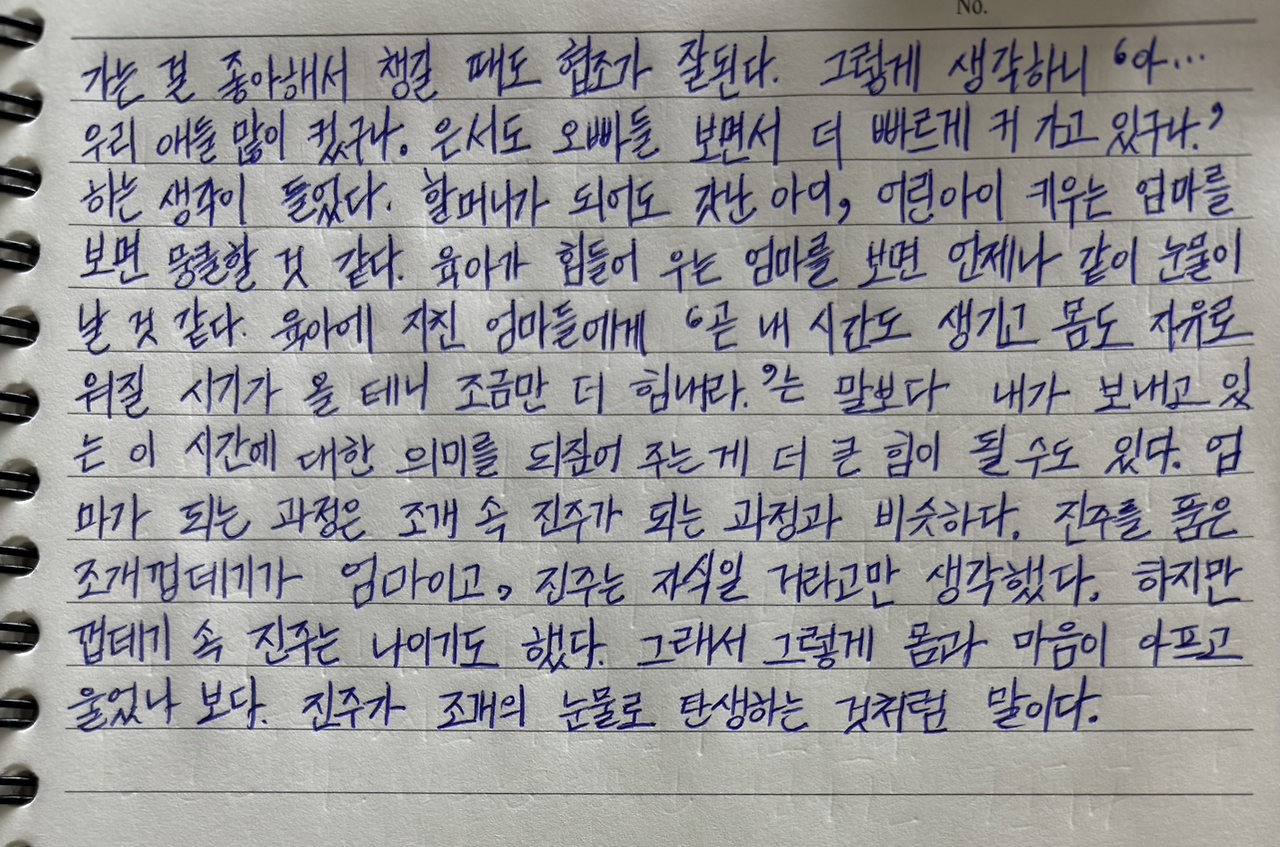 No.
가는 걸 좋아해서 챙길 때도 협조가 잘된다. 그렇게 생각하니 ‘아...
우리 애들 많이 컸구나. 은서도 오빠들 보면서 더 빠르게 커 가고 있구나.’
하는 생각이 들었다. 할머니가 되어도 갓난 아이, 어린아이 키우는 엄마를
보면 뭉클할 것 같다. 육아가 힘들어 우는 엄마를 보면 언제나 같이 눈물이
날 것 같다. 육아에 지친 엄마들에게 ‘곧 내 시간도 생기고 몸도 자유로
워질 시기가 올 테니 조금만 더 힘내라.’는 말보다 내가 보내고 있
는 이 시간에 대한 의미를 되짚어 주는게 더 큰 힘이 될 수도 있다. 엄
마가 되는 과정은 조개 속 진주가 되는 과정과 비슷하다. 진주를 품은
조개껍데기가 엄마이고, 진주는 자식일 거라고만 생각했다. 하지만
껍데기 속 진주는 나이기도 했다. 그래서 그렇게 몸과 마음이 아프고
울었나 보다. 진주가 조개의 눈물로 탄생하는 것처럼 말이다.